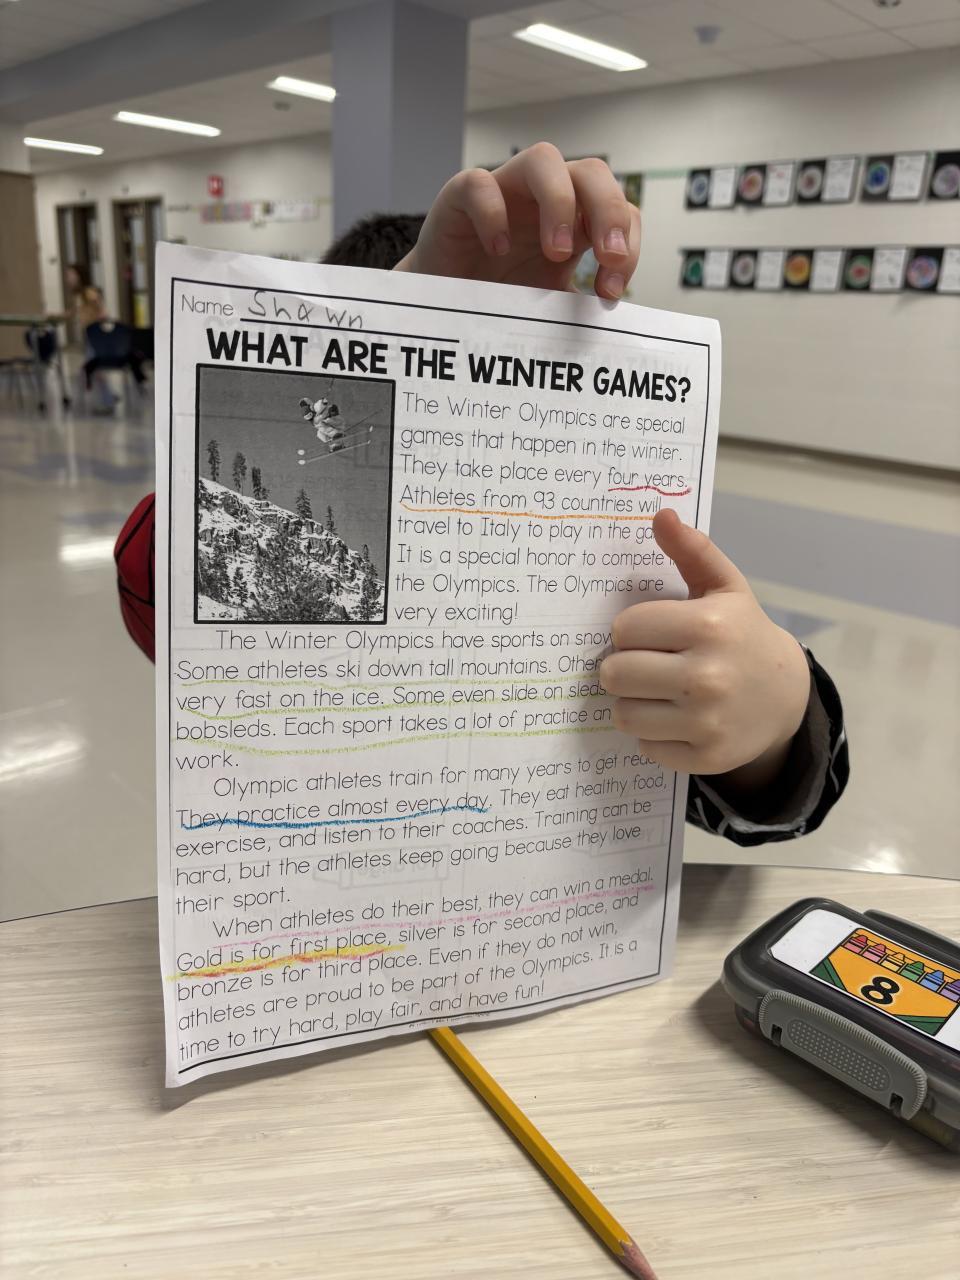 Name Shawn
WHAT ARE THE WINTER GAMES?
The Winter Olympics are special
games that happen in the winter.
They take place every four years.
Athletes from 93 countries will
travel to Italy to play in the
It is a special honor to compete
the Olympics. The Olympics are
very exciting!
The Winter Olympics have sports on snow
Some athletes ski down tall mountains.
very fast on the ice. Some even slide on sleds
bobsleds. Each sport takes a lot of practice
work.
Olympic athletes train for many years to get
They practice almost every day. They eat healthy food,
exercise, and listen to their coaches. Training can be
hard, but the athletes keep going because they love
their sport.
When athletes do their best, they can win a medal.
Gold is for first place, silver is for second place, and
bronze is for third place. Even if they do not win,
athletes are proud to be part of the Olympics. It is a
time to try hard, play fair, and have fun!
8